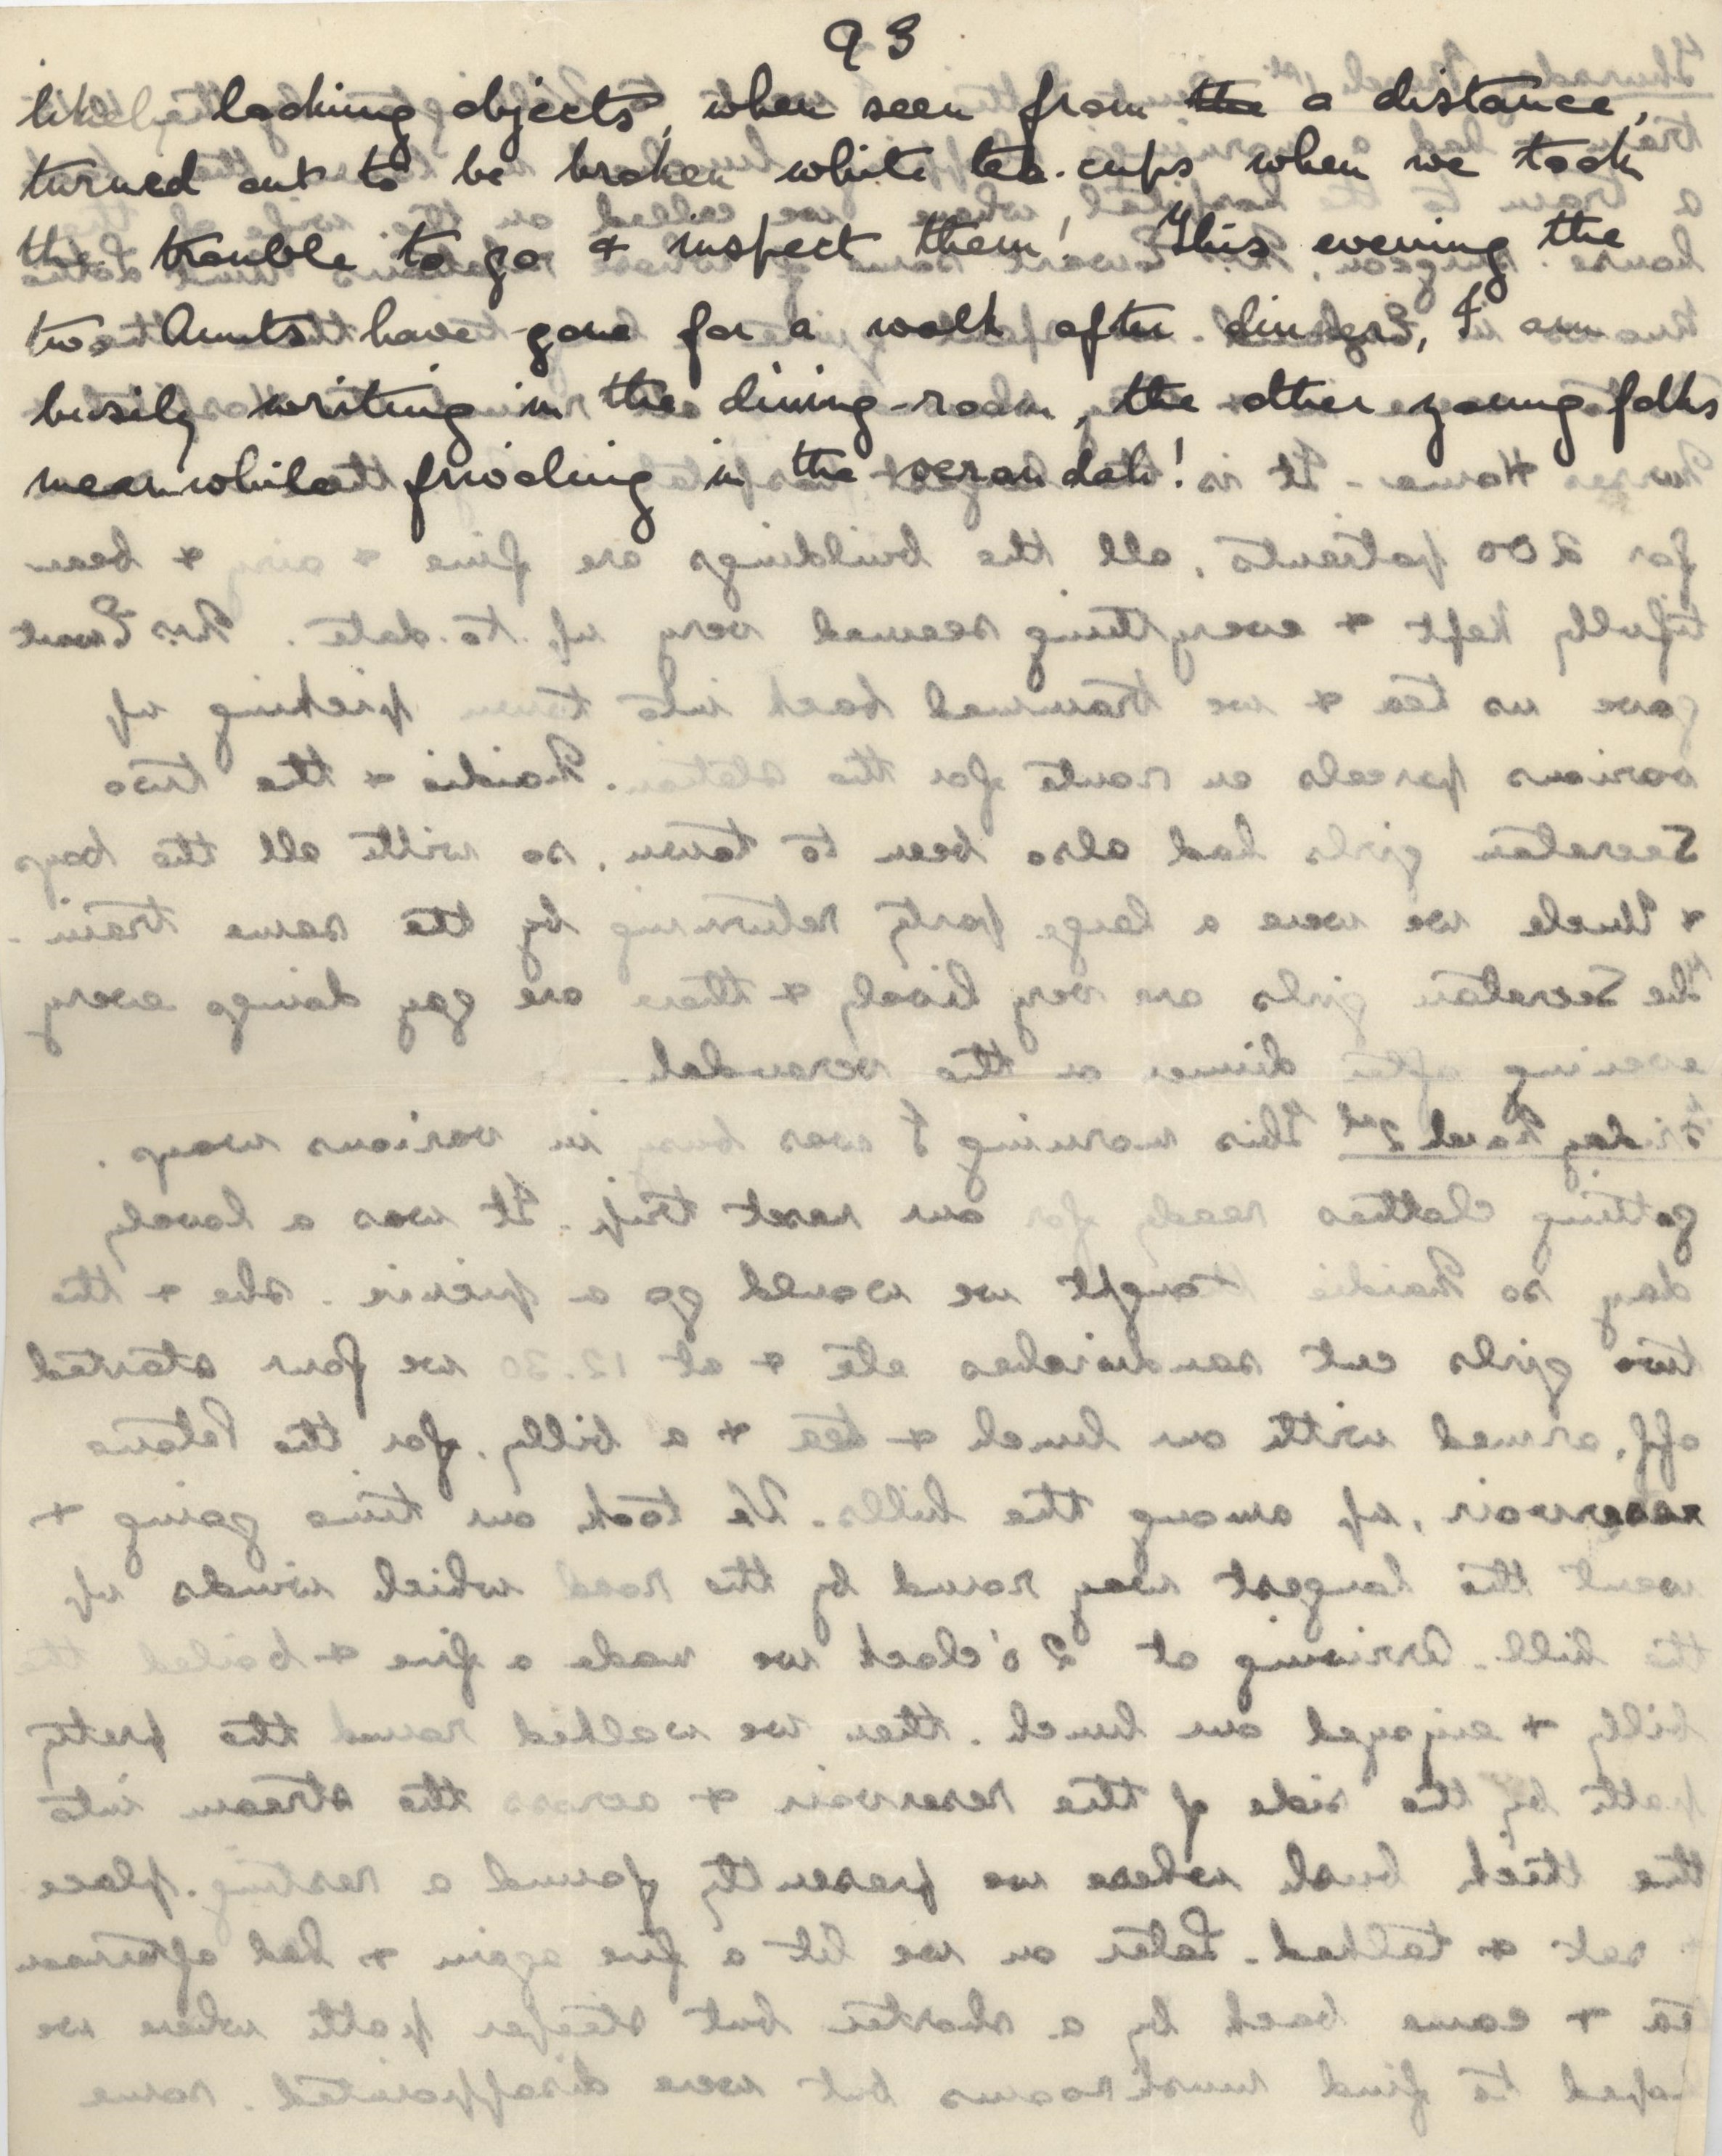 93
likely looking objects, when seen from the a distance,
turned out to be broken white tea-cups when we took
the trouble to go & inspect them! This evening the
two Aunts have gone for a walk after dinner, I am
busily writing in the dining-room, the other young folks
meanwhile frivoling in the verandah!